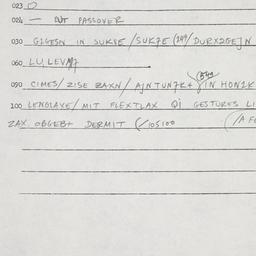 023 O
024 — NOT PASSOVER
030 GIGESN IN SUKVE / SUK7E (249/DURX2GEJN
060 LU, LEV
090 CIMES / ZISE BAXN / AJNTUN7K+ IN HON2K
100 LEKOLAXE / MIT FLEXTLAX QI GESTURES LI
ZAX OBGEB+ DERMIT (/105100 (/A FE